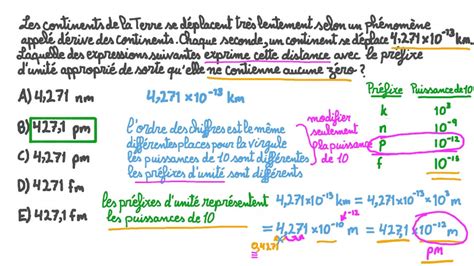 Les continents de la Terre se déplacent très lentement selon un phénomène
appelé dérive des continents. Chaque seconde, un continent se déplace 4,271×10⁻¹³ km.
Laquelle des expressions suivantes exprime cette distance avec le préfixe
d'unité approprié de sorte qu'elle ne contienne aucune zéro ?
A) 4,271 nm
B) 427,1 pm
C) 4,271 pm
D) 4,271 fm
E) 427,1 fm
4,271×10⁻¹³ km
l'ordre des chiffres est le même
différentes places pour la virgule
les puissances de 10 sont différentes
les préfixes d'unité sont différents
modifier
seulement
la puissance
de 10
Préfixe Puissance de 10
k 10³
n 10⁻⁹
p 10⁻¹²
f 10⁻¹⁵
les préfixes d'unité représentent
les puissances de 10
4,271×10⁻¹³ km = 4,271×10⁻¹³×10³ m
-12
= 4,271×10⁻¹⁰ m = 427,1×10⁻¹² m
0,4271
pm